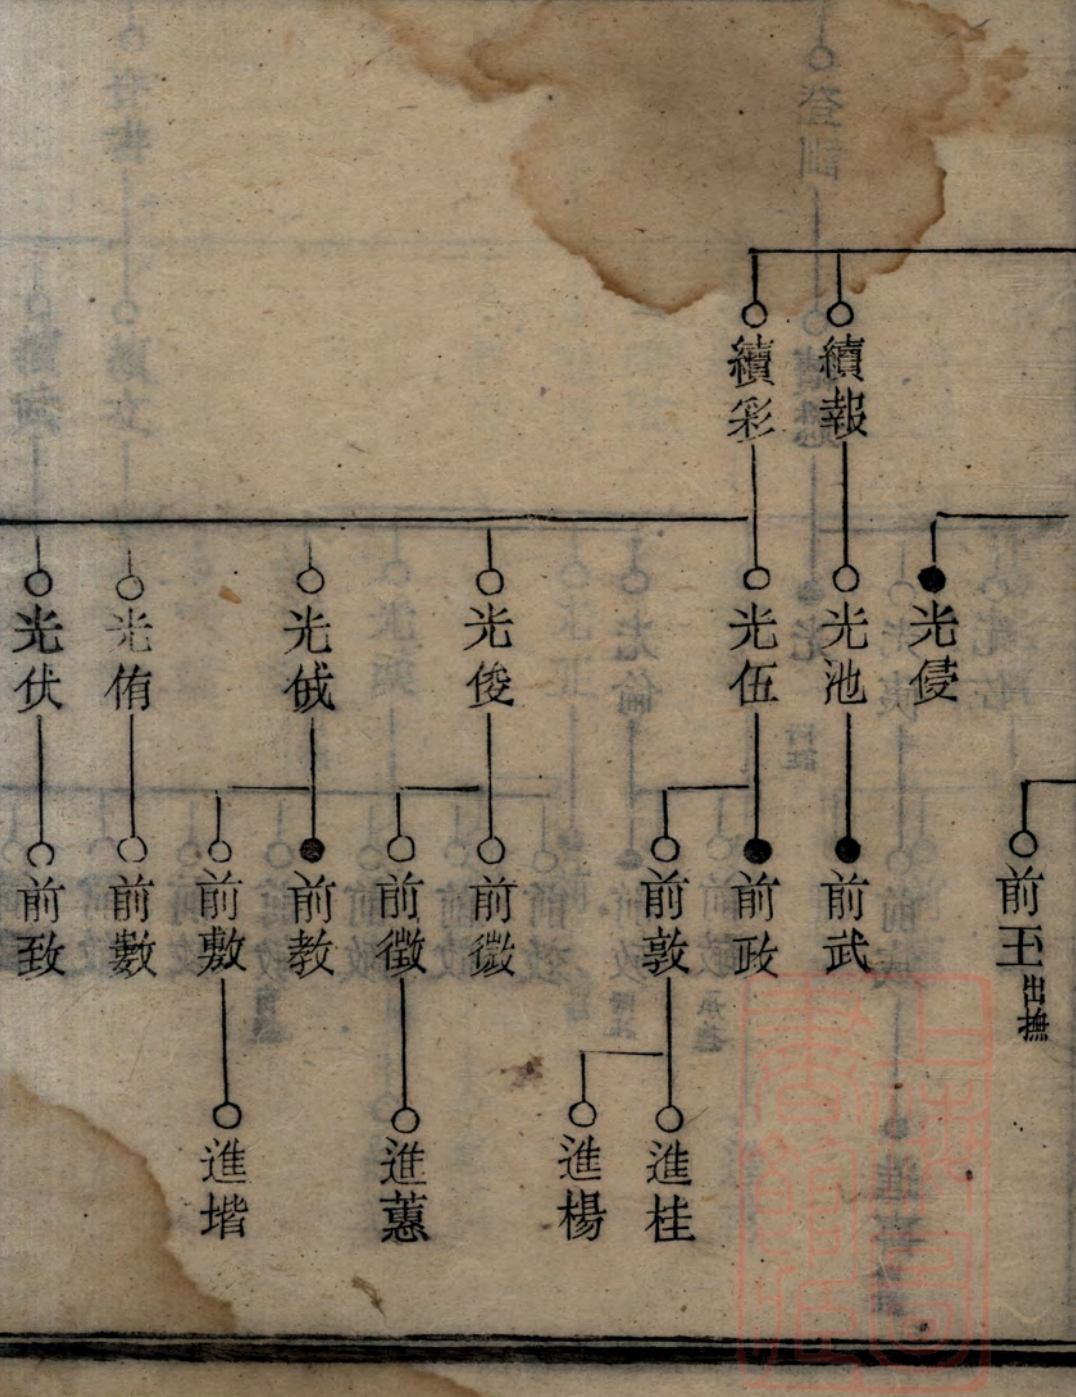 續報
續彩
光侵
光池
光伍
光俊
光侑
光伏
前王出撫
前武
前政
前敦
前徵
前教
前敷
前數
前致
進桂
進楊
進蕙
進堦